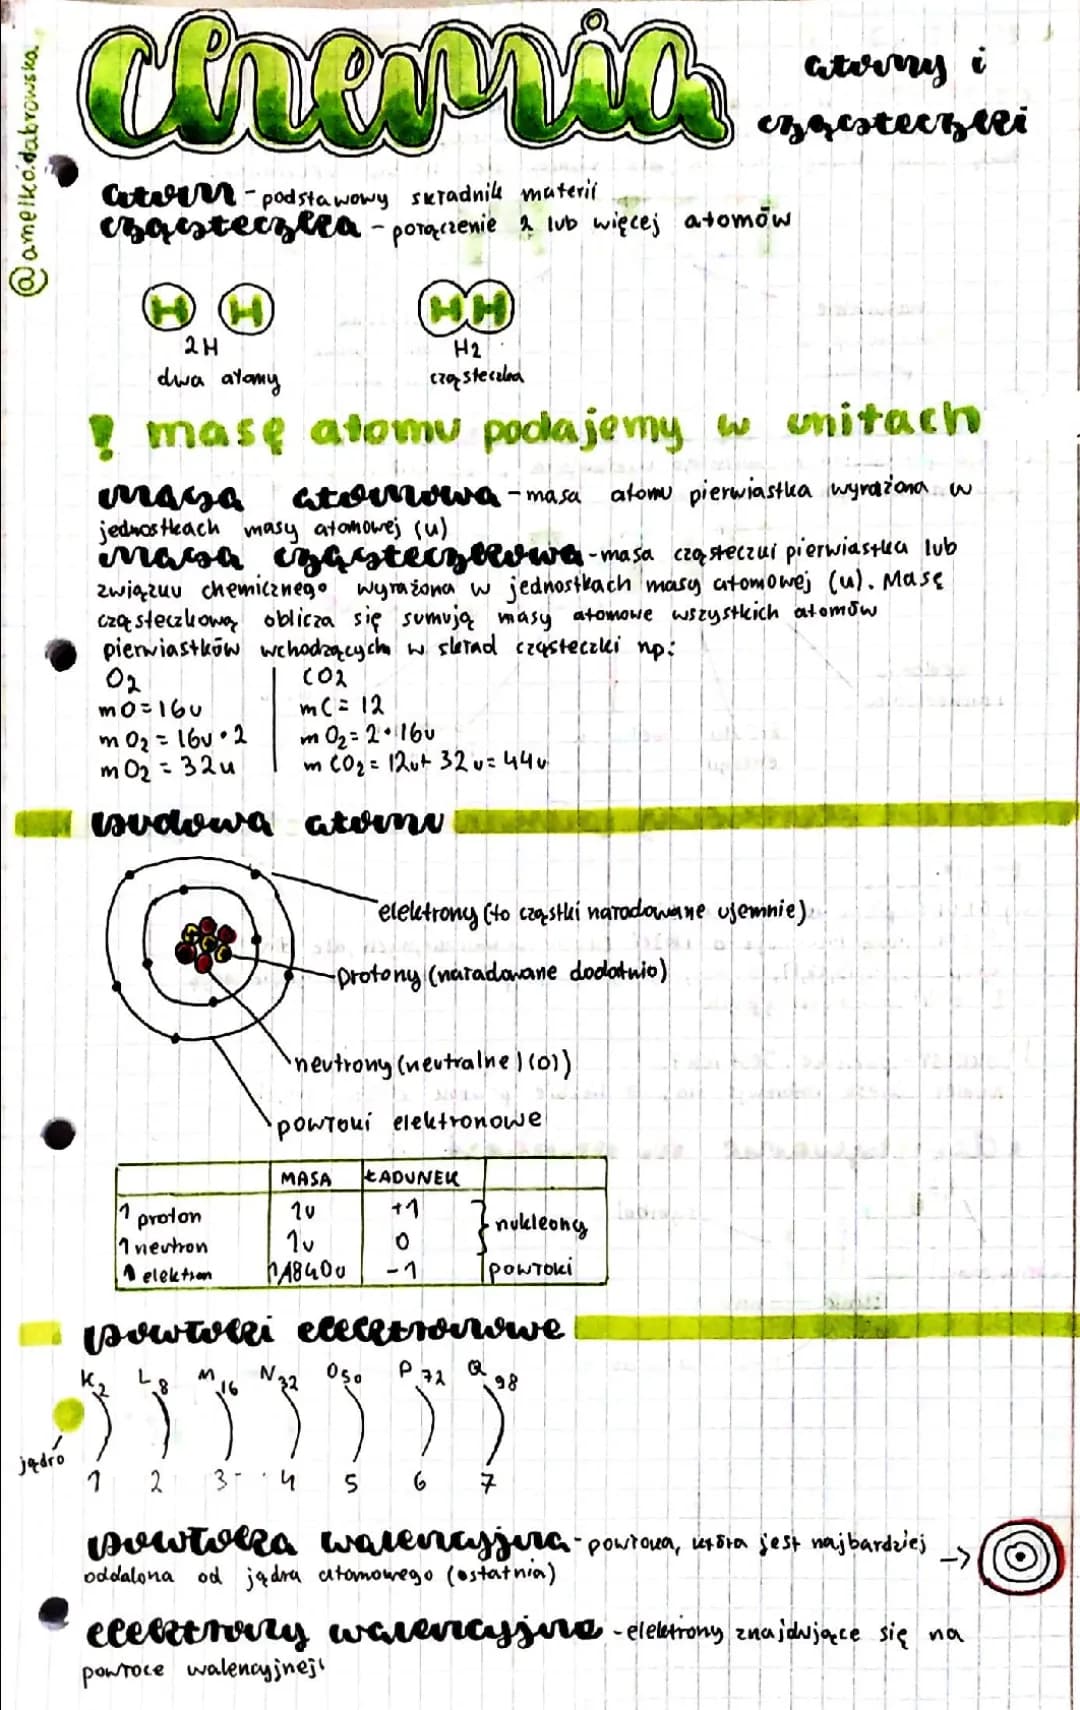 @amelka.dabrowska
chemia
atomy i
cząsteczki
atom - podstawowy składnik materii
cząsteczka - połączenie 2 lub więcej atomów
H H HH
2H H2
dwa atomy cząsteczka
! masę atomu podajemy w unitach
masa atomowa - masa atomu pierwiastka wyrażona w
jednostkach masy atomowej (u)
masa cząsteczkowa - masa cząsteczki pierwiastka lub
związku chemicznego wyrażona w jednostkach masy atomowej (u). Masę
cząsteczkową oblicza się sumują masy atomowe wszystkich atomów
pierwiastków wchodzących w skład cząsteczki np:
O2
mO=16u
mO2=16u•2
mO2=32u
CO2
mC=12
mO2=2•16u
mCO2=12u+32u=44u
budowa atomu
elektrony (to cząstki naładowane ujemnie)
protony (naładowane dodatnio)
neutrony (neutralne) (0))
powłoki elektronowe
MASA ŁADUNEK
1 proton 1u +1
1 neutron 1u 0
nukleony
1 elektron 1/1840u -1 powłoki
powłoki elektronowe
K2 L8 M16 N32 O50 P72 Q98
jądro
1 2 3 4 5 6 7
powłoka walencyjna - powłoka, która jest najbardziej ->
oddalona od jądra atomowego (ostatnia)
elektrony walencyjne - elektrony znajdujące się na
powłoce walencyjnej